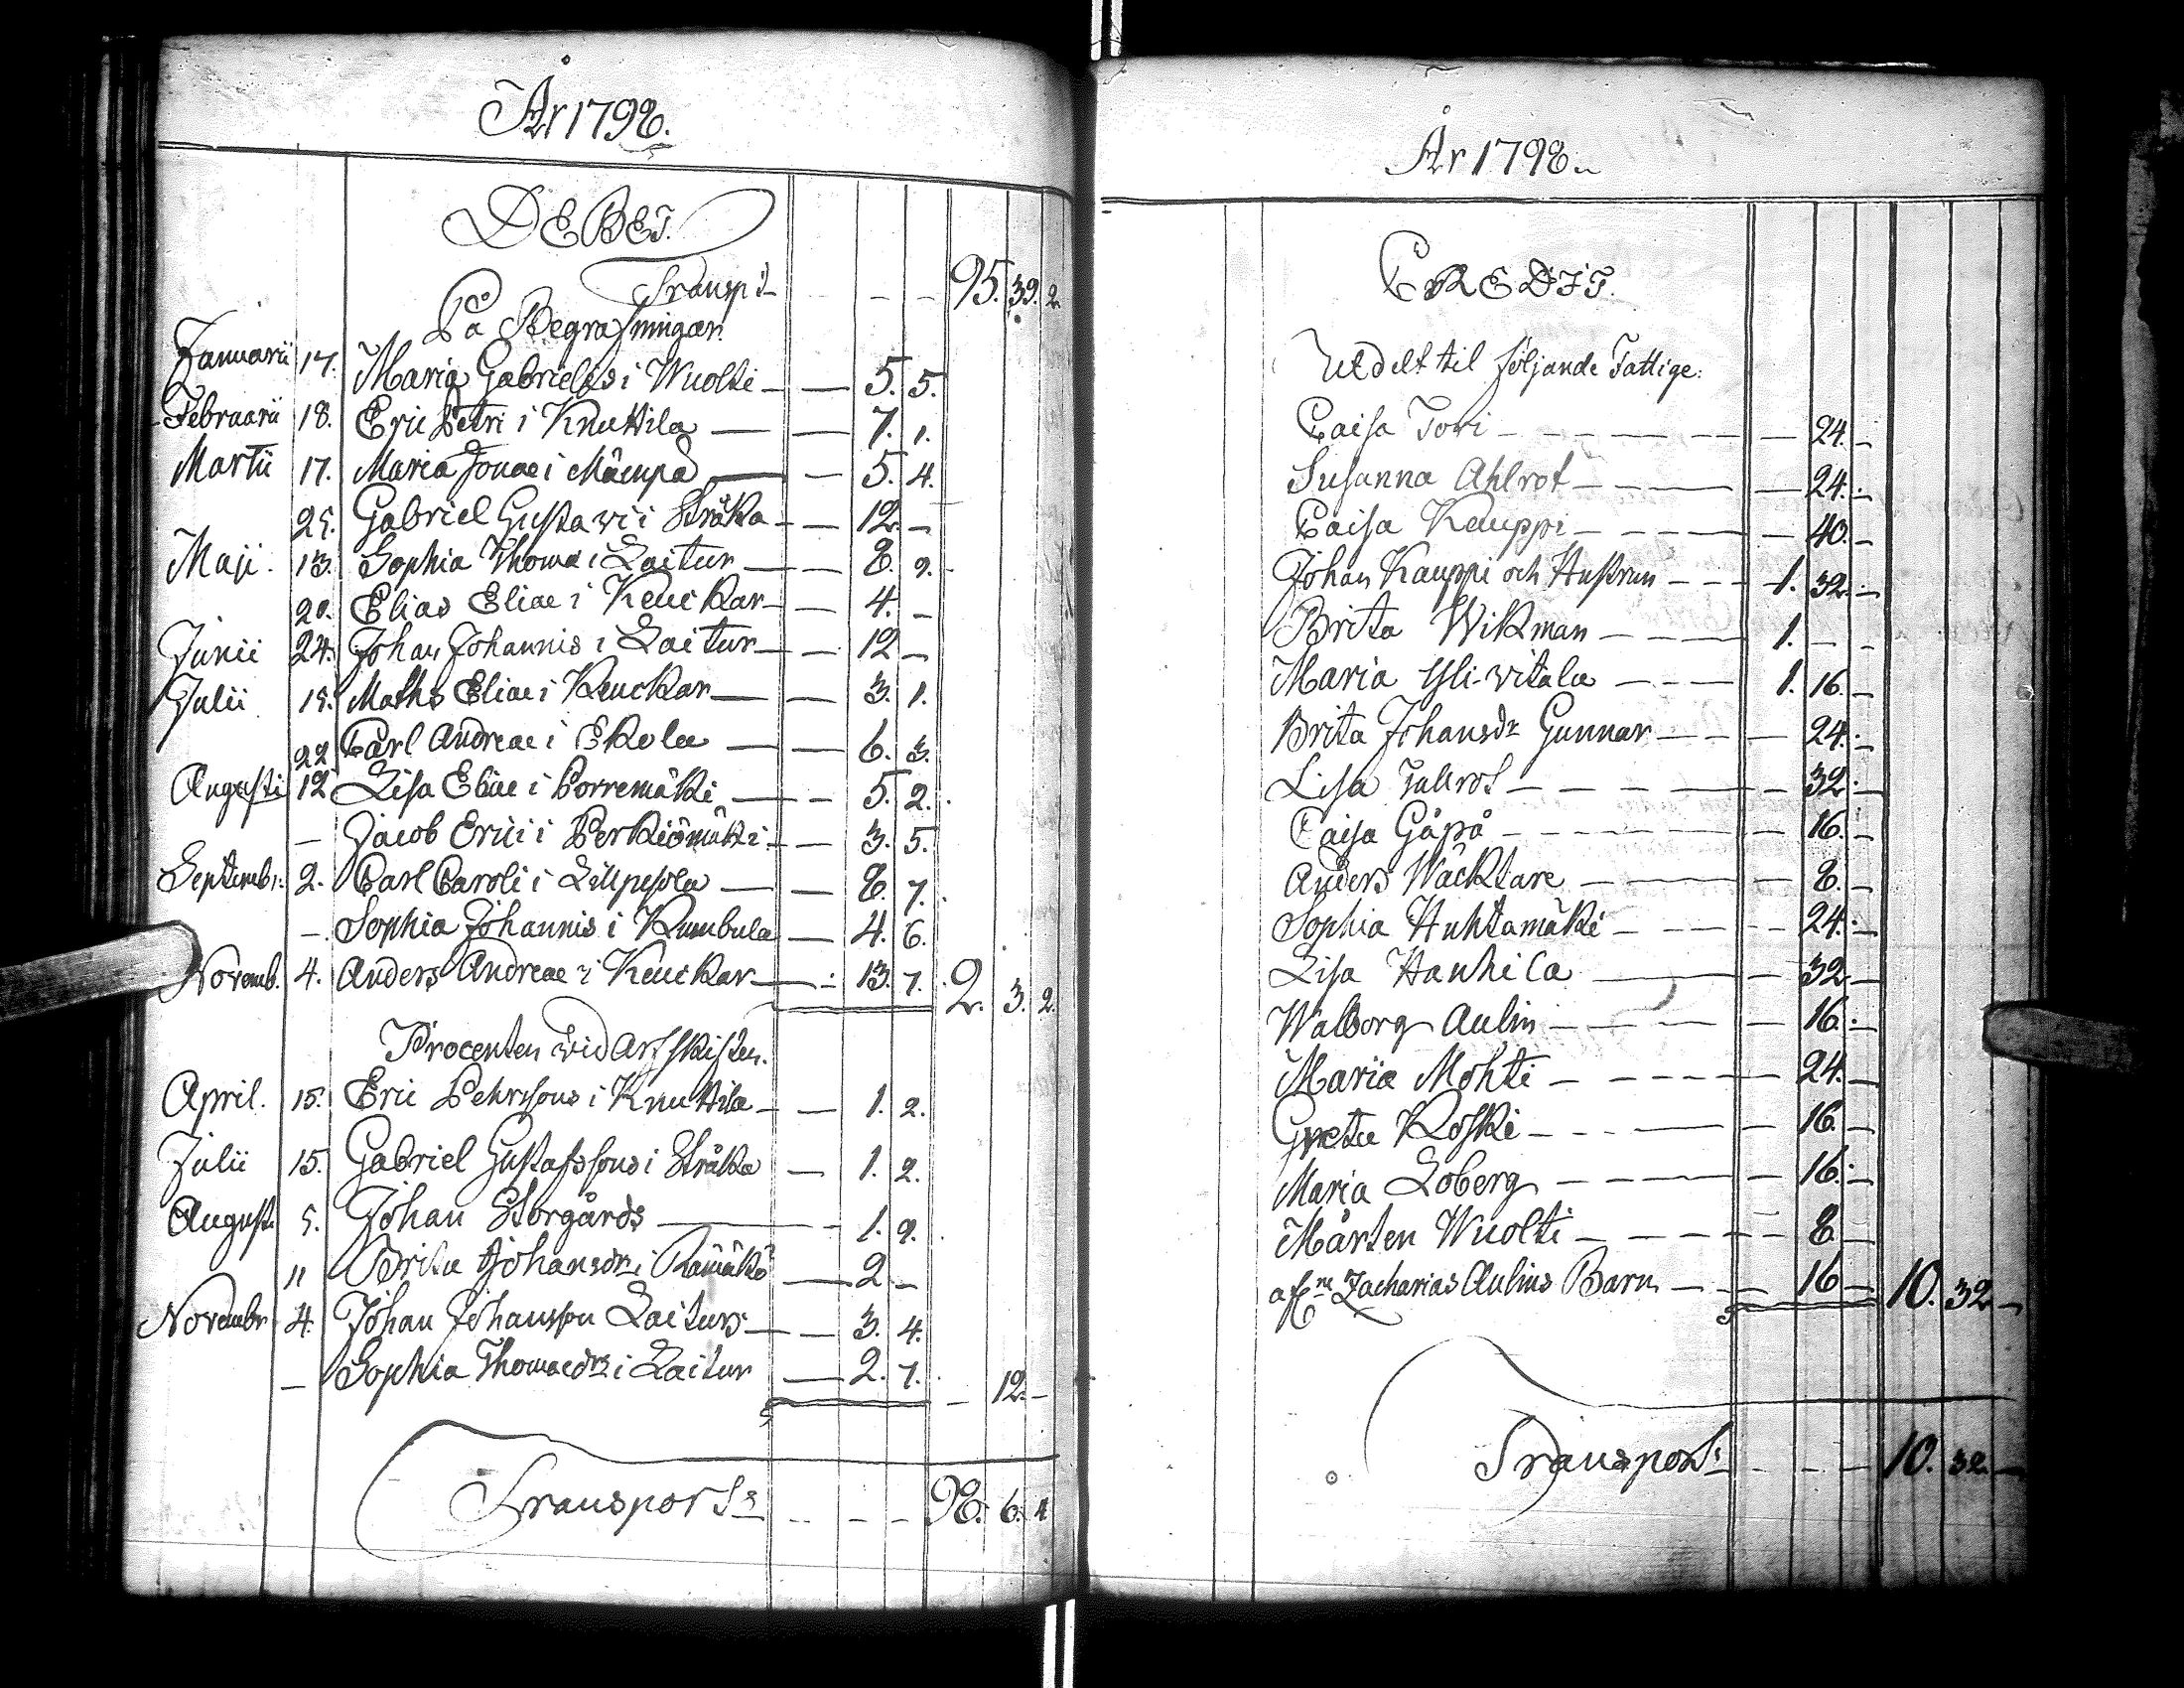 År 1798.
DEBET.
Transp:t – – – 95. 39. 2.
På Begrafningar.
Januarii 17. Maria Gabrielis i Wuolti – — 5. 5.
Februarii 18. Eric Petri i Knuttila — — 7. 1.
Martii 17. Maria Jonae i Mäenpä — – 5. 4.
25. Gabriel Gustavi i Stråka – — 12. –
Maji. 13. Sophia Thomæ i Laitur — — 8. 2.
20. Elias Eliae i Keuckar – — 4. –
Junii 24. Johan Johannis i Laitur — – 12 –
Julii 15. Maths Eliae i Keuckar — — 3. 1.
22 Carl Andreae i Ekola — — 6. 3.
Augusti 12 Lisa Eliae i Porremäki — – 5. 2.
– Jacob Erici i Perkiömäki – — 3. 5.
Septembr: 2. Carl Caroli i Lillpesola — — 8. 7.
–. Sophia Johannis i Kumbula — 4. 6.
Novemb. 4. Anders Andreae i Keuckar — – 13. 7. 2. 3. 2.
Procenten vid Arfskiften.
April. 15. Eric Pehrssons i Knuttila – — 1. 2.
Julii 15. Gabriel Gustafssons i Stråka — 1. 2.
August. 5. Johan Storgårds — – 1. 2.
11 Brita Johansdr i — 2 –
Novembr 4. Johan Johansson Laiturs — – 3. 4.
– Sophia Thomaedr i Laitur — 2. 7. – 12. –
Transport: – – – 98. 6. 4
År 1798.
CREDIT.
Utdelt til följande Fattige:
Caisa Tori – – – — 24. –
Susanna Ahlrot – – — 24. –
Caisa Kauppi – – – — 40. –
Johan Kauppi och Hustrun – – – 1. 32. –
Brita Wikman – – — 1. – –
Maria Yli-vitala – – — 1. 16. –
Brita Johansdr Gunnar — – — 24. –
Lisa Tallrot – – – — 32. –
Caisa Gåpå – – – — 16. –
Anders Wäcktare – — — 8. –
Sophia Huhtamäki – – – – 24. –
Lisa Hanhila — — 32 –
Walborg Aulin – – — 16. –
Maria Mohti – – – — 24. –
Greta Koski – – – — 16. –
Maria Loberg – – – — 16. –
Mårten Wuolti – – – – 8. –
afl:ne Zacharias Aulins Barn — – 16 – 10. 32 –
Transport: – – – 10. 32. –